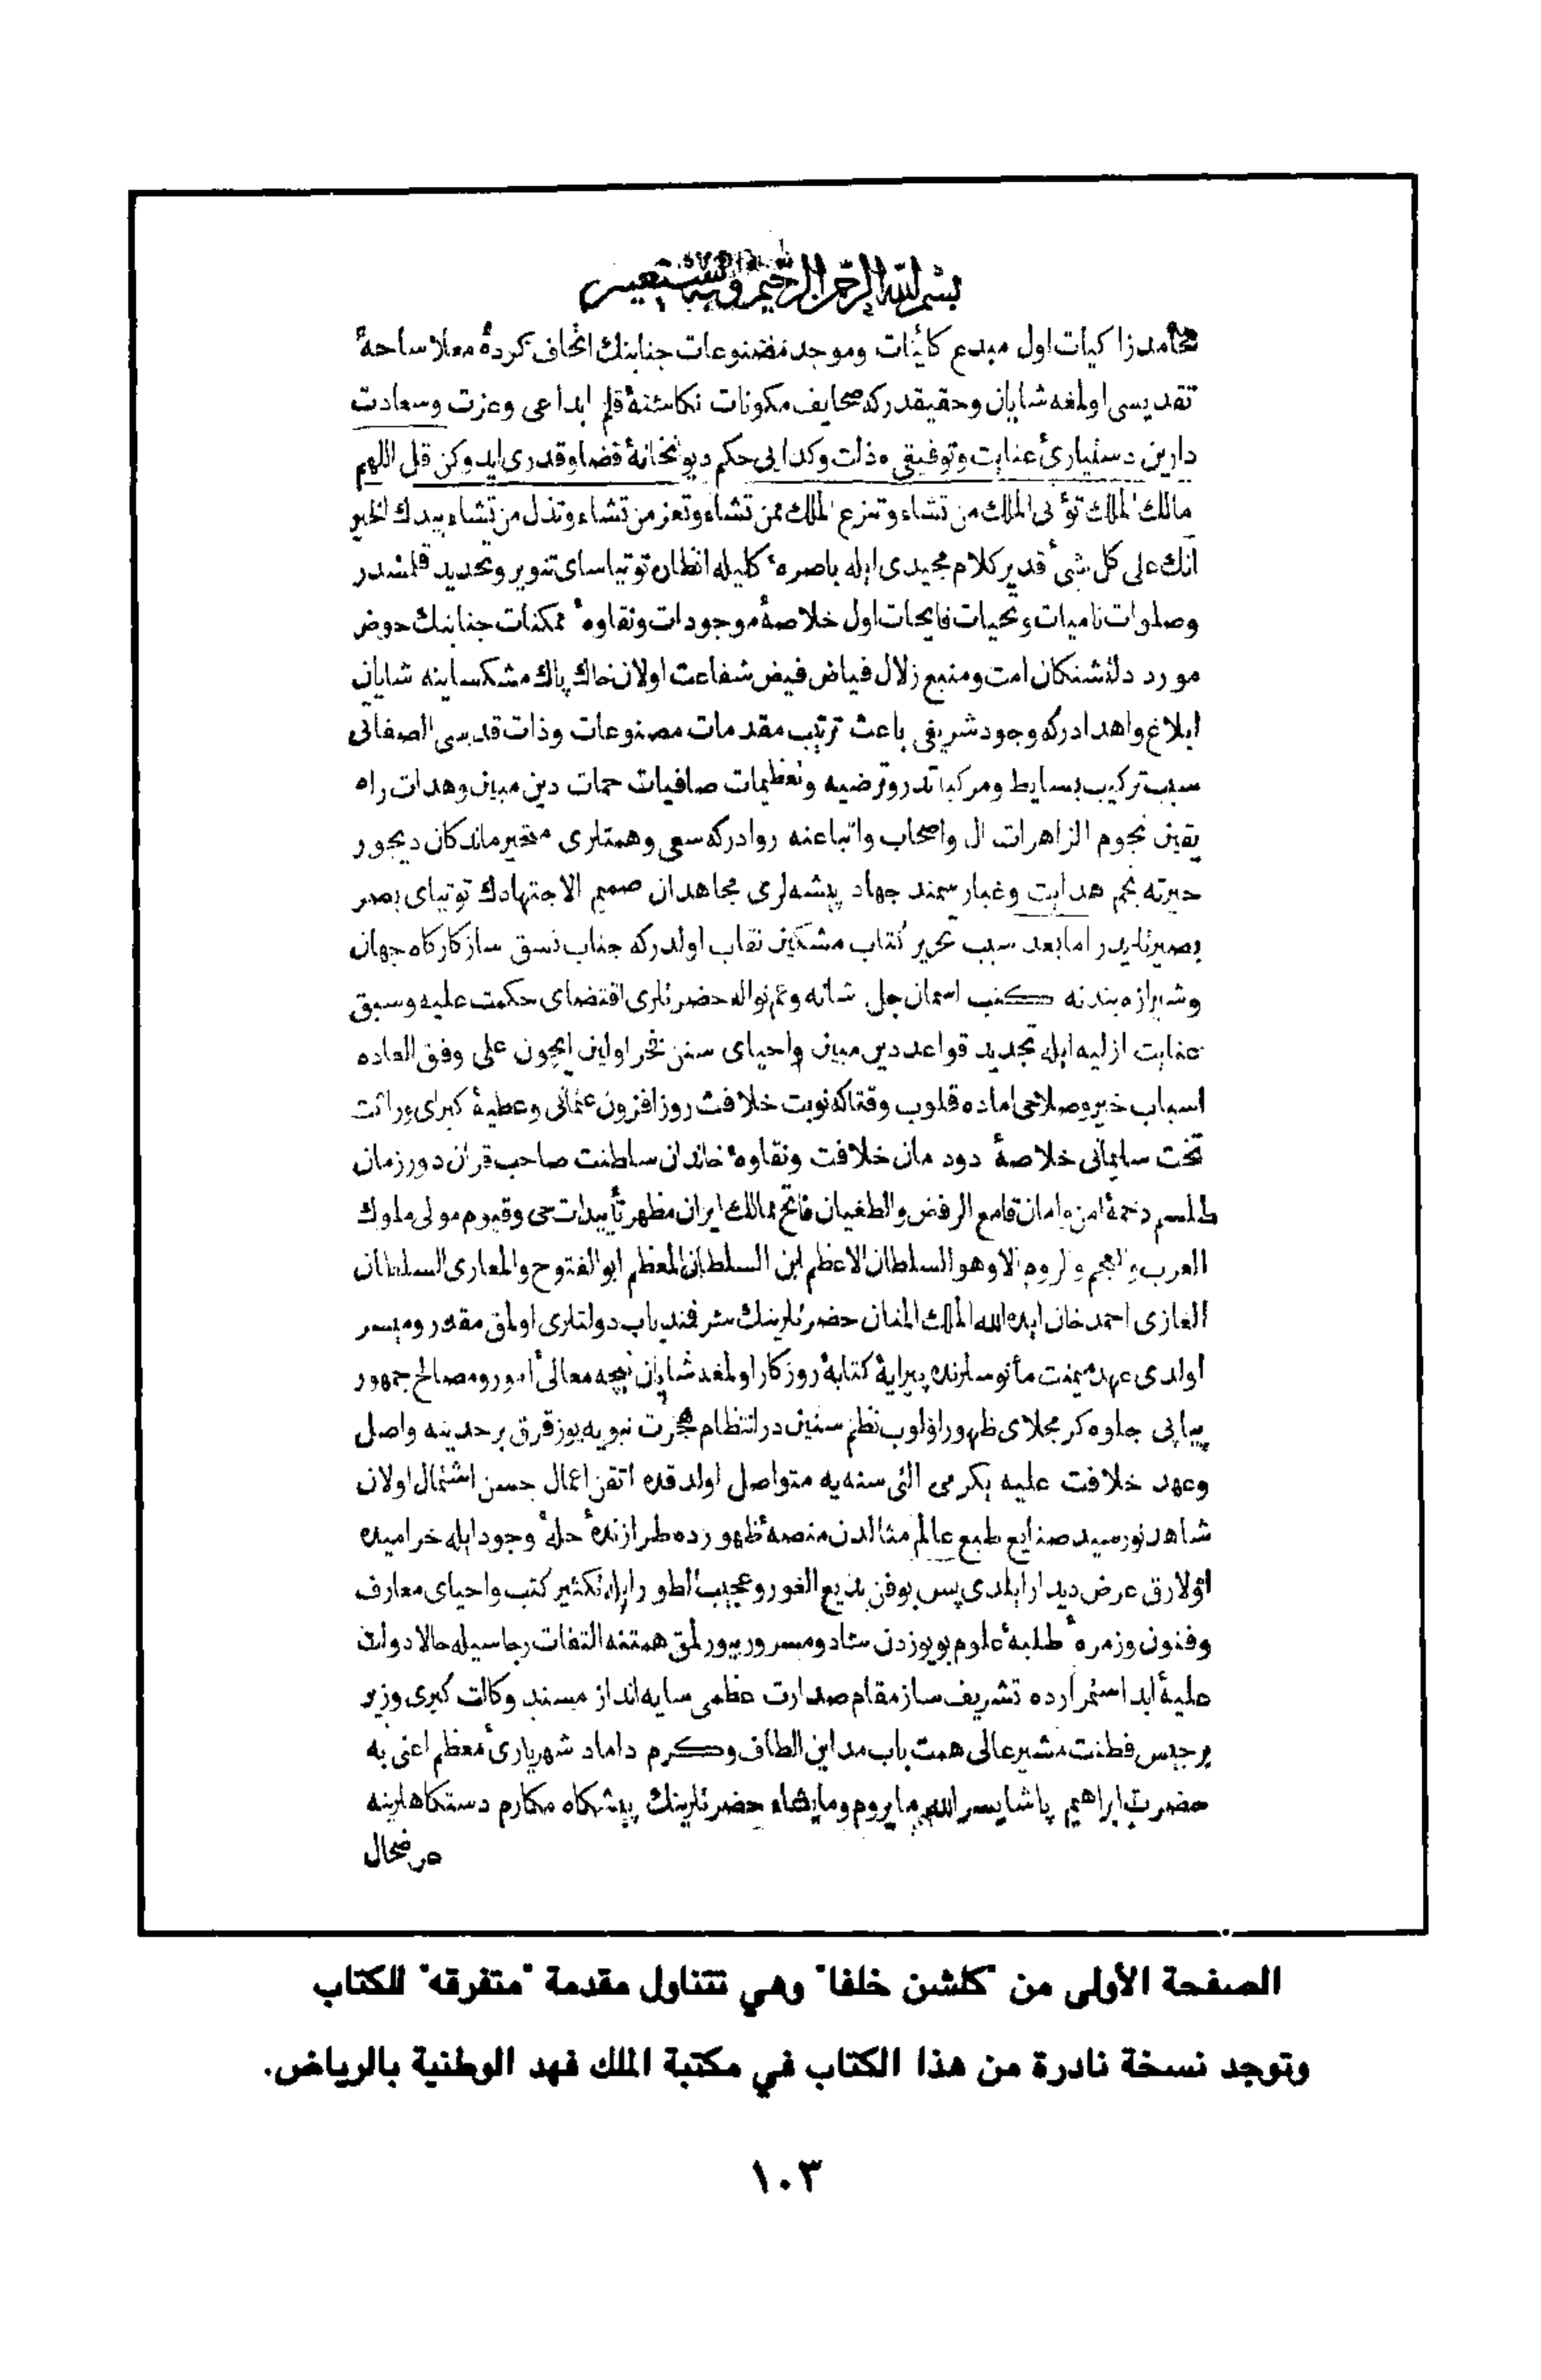 بسم الله الرحمن الرحيم وبه نستعين
محامد زاكيات اول مبدع كائنات وموجد مصنوعات جنابنك اتحاف كردهٔ معلا ساحهٔ
تقديسى اولمغه شايان وحقيقدركه صحايف مكونات نكاشتهٔ قلم ابداعى وعزت وسعادت
دارين دستيارئ عنايت وتوفيقى وذلت وكدايى حكم ديوانخانهٔ قضا وقدرى ايدوكن قل اللهم
مالك الملك تؤتى الملك من تشاء وتنزع الملك ممن تشاء وتعز من تشاء وتذل من تشاء بيدك الخير
انك على كل شئ قدير كلام مجيدى ايله باصرهٔ كليله انظاره توتياساى تنوير وتحديد قلمشدر
وصلوات ناميات وتحيات فايحات اول خلاصهٔ موجودات ونقاوهٔ ممكنات جنابنك حوض
مورد دلتشنكان امت ومنبع زلال فياض فيض شفاعت اولان خاك پاك مشكساينه شايان
ابلاغ واهدادركه وجود شريفى باعث ترتيب مقدمات مصنوعات وذات قدسى الصفاتى
سبب تركيب بسايط ومركباتدر وترضيه وتعظيمات صافيات حمات دين مبين وهدات راه
يقين نجوم الزاهرات ال واصحاب واتباعنه روادركه سعى وهمتلرى متحير ماندكان ديجور
حيرته نجم هدايت وغبار سمند جهاد پيشه‌لرى مجاهدان صميم الاجتهادك توتياى بصر
بصيرتلريدر اما بعد سبب تحرير كتاب مشكين نقاب اولدركه جناب نسق ساز كاركاه جهان
وشيرازه بندنه كتب اسمان جل شانه وعم نواله حضرتلرى اقتضاى حكمت عليه وسبق
عنايت ازليه ايله تجديد قواعد دين مبين واحياى سنن فخر اولين ايچون على وفق العاده
اسباب خير وصلاحى اماده قلوب وقتاكه نوبت خلافت روزافزون عثمانى وعطيهٔ كبراى وراثت
تخت سليمانى خلاصهٔ دودمان خلافت ونقاوهٔ خاندان سلطنت صاحب قران دور زمان
طلسم دخمهٔ امن وامان قامع الرفض والطغيان فاتح ممالك ايران مظهر تأييدات حى وقيوم مولى ملوك
العرب والعجم والروم الا وهو السلطان الاعظم ابن السلطان المعظم ابو الفتوح والمغازى السلطان
الغازى احمد خان ايده الله الملك المنان حضرتلرينك شرفنه ياب دولتلرى اولمق مقدر وميسر
اولدى عهد ميمنت مأنوسلرنده پيرايهٔ كتابهٔ روزكار اولمغه شايان نيچه معالئ امور ومصالح جمهور
پياپى جلوه كر مجلاى ظهور اولوب نظم سنين در انتظام هجرت نبويه يوز قرق بر حدينه واصل
وعهد خلافت عليه يكرمى التى سنه‌يه متواصل اولدقده اتقن اعمال حسن اشتمال اولان
شاهد نورسيد صنايع طبع عالم مثالدن منصهٔ ظهورده طرازندهٔ حلهٔ وجود ايله خراميده
اولارق عرض ديدار ايلدى پس بو فن بديع الغور وعجيب الطور ايله تكثير كتب واحياى معارف
وفنون وزمرهٔ طلبهٔ علوم بو يوزدن شاد ومسرور بيورلمق همتنه التفات رجاسيله حالا دولت
عليهٔ ابد استمرارده تشريف ساز مقام صدارت عظمى سايه انداز مسند وكالت كبرى وزير
برجيس فطنت مشير عالى همت باب مداين الطاف وكرم داماد شهريارئ معظم اعنى به
حضرت ابراهيم پاشا يسر الله ما يروم وما يشاء حضرتلرينك پيشكاه مكارم دستكاهلرينه
عرضحال
الصفحة الأولى من "كلشن خلفا" وهي تتناول مقدمة "متفرقه" للكتاب
وتوجد نسخة نادرة من هذا الكتاب في مكتبة الملك فهد الوطنية بالرياض.
١٠٣